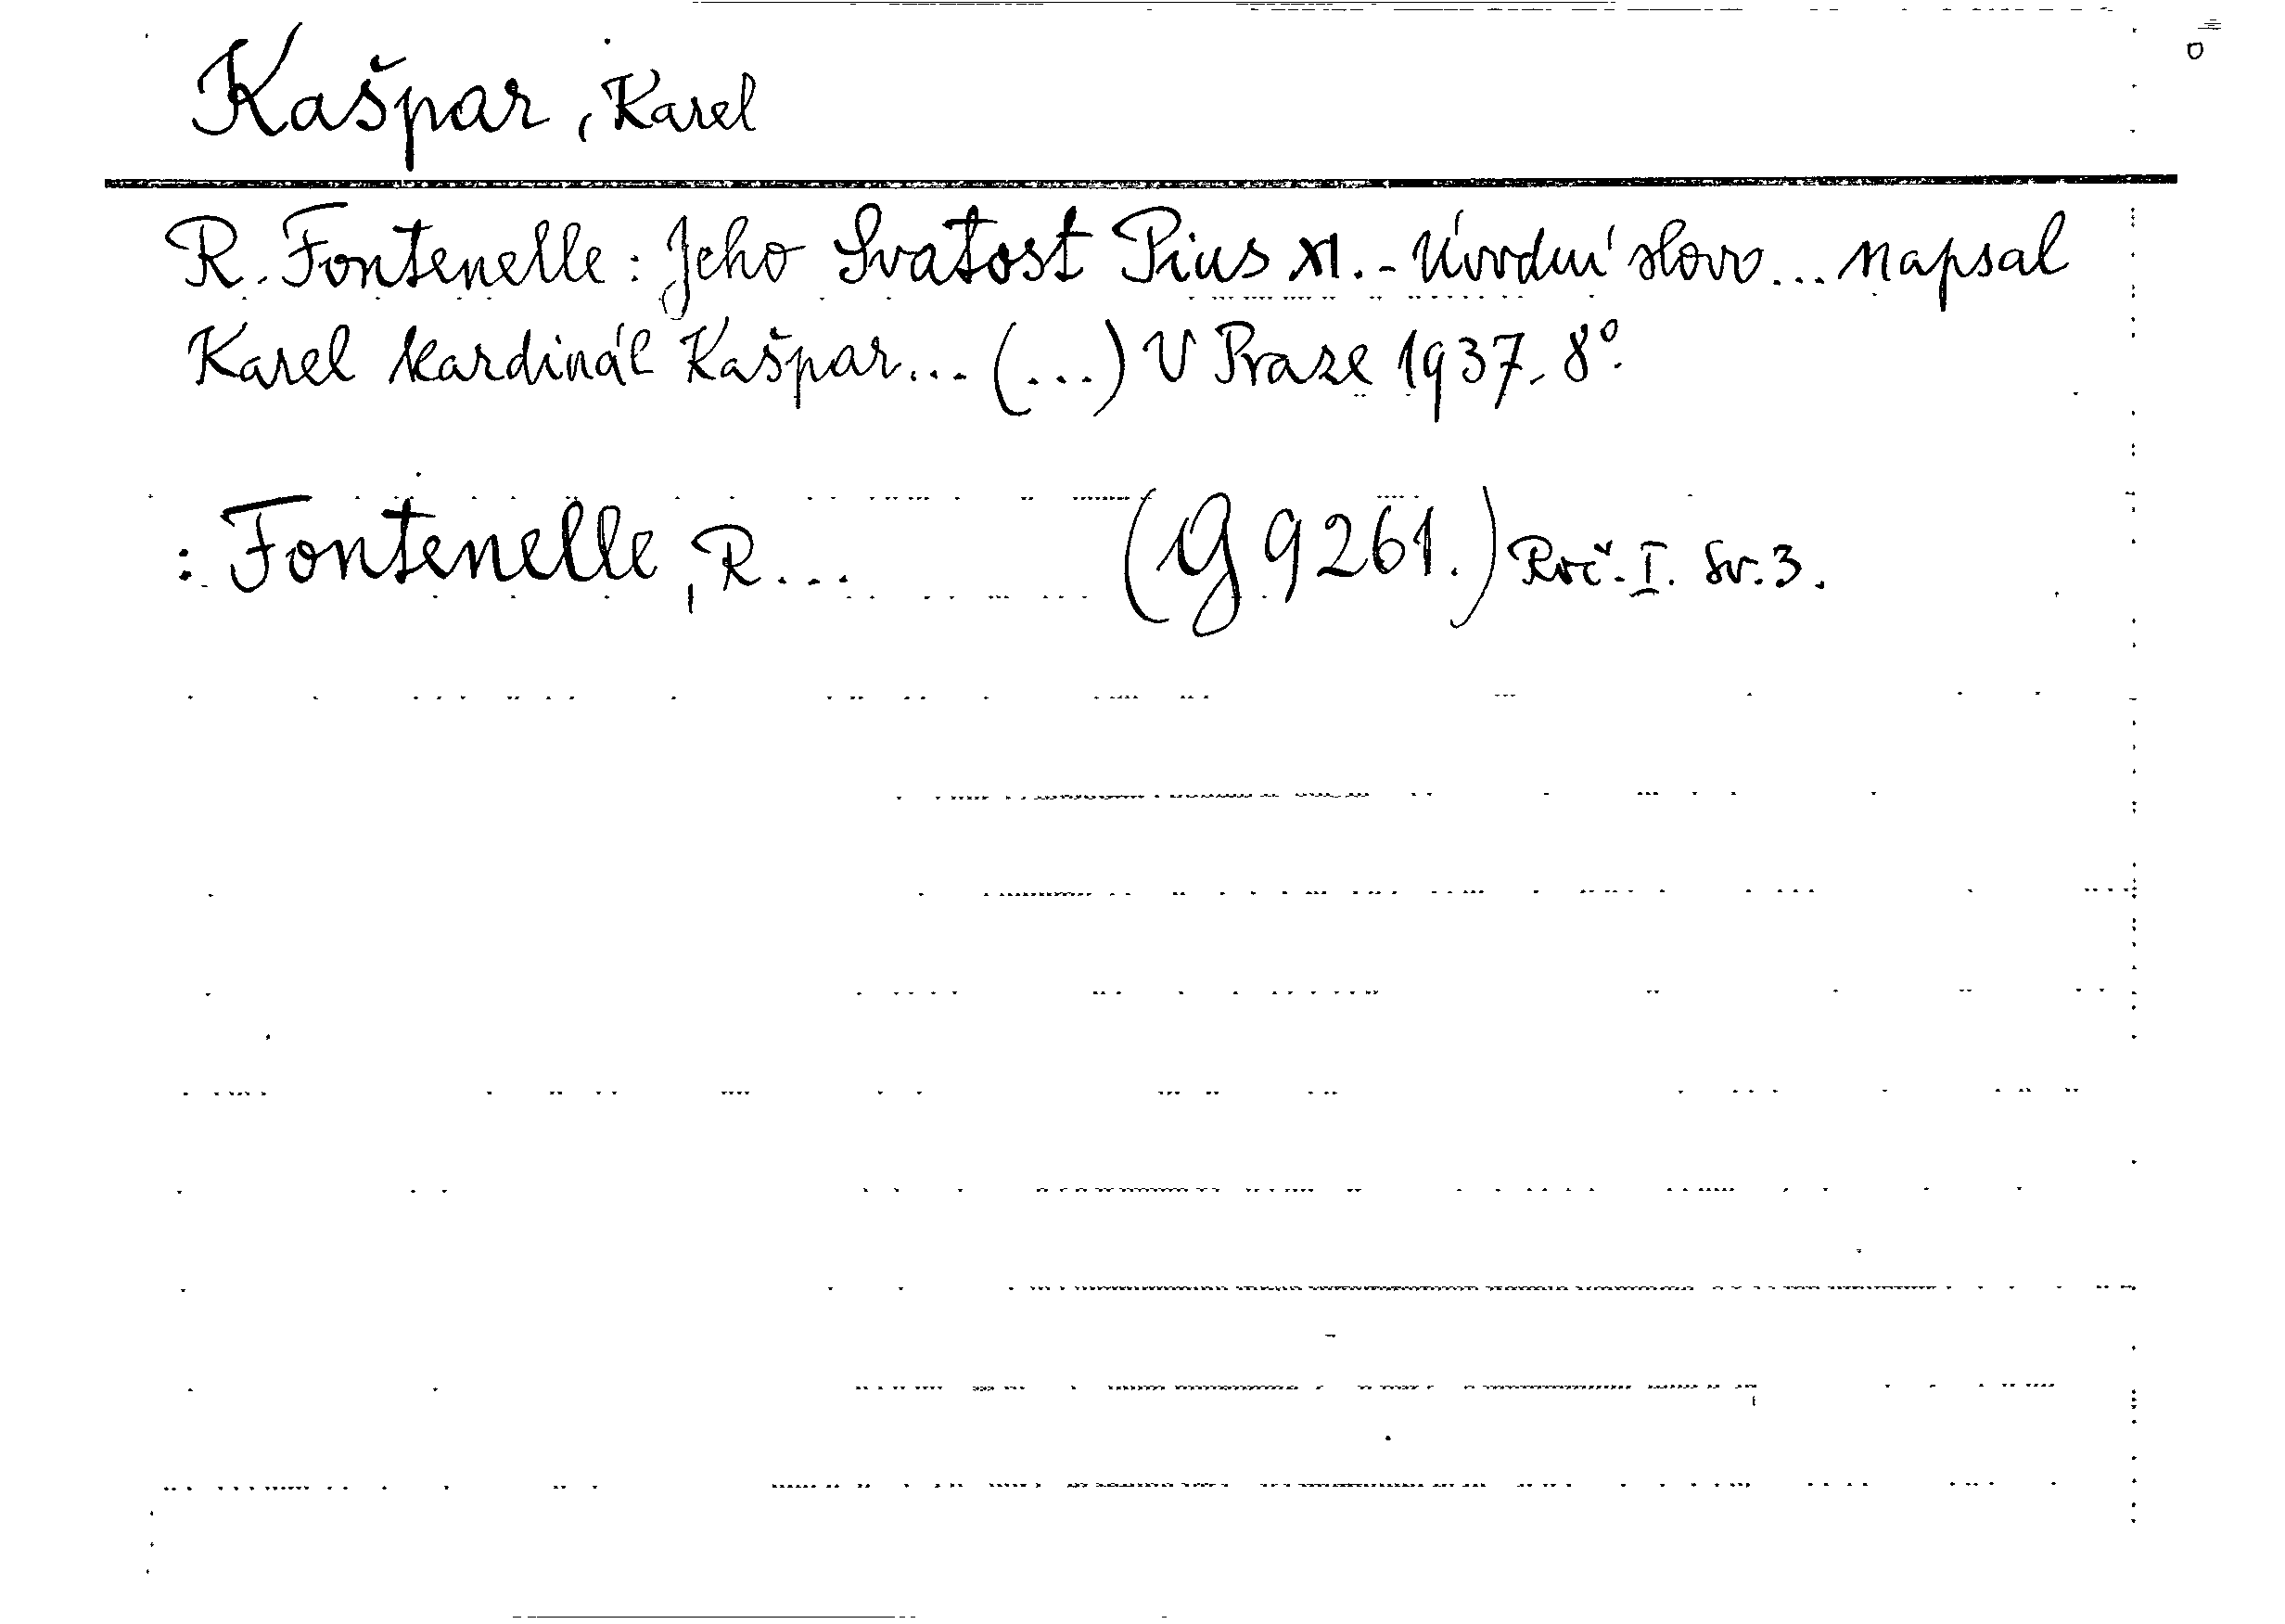 Kašpar, Karel
R. Fontenelle: Jeho Svatost Pius XI. - Úvodní slovo... napsal
Karel kardinál Kašpar... (...) V Praze 1937. 8°.
: Fontenelle, R... (G 9261.) Roč. I. Sv. 3.